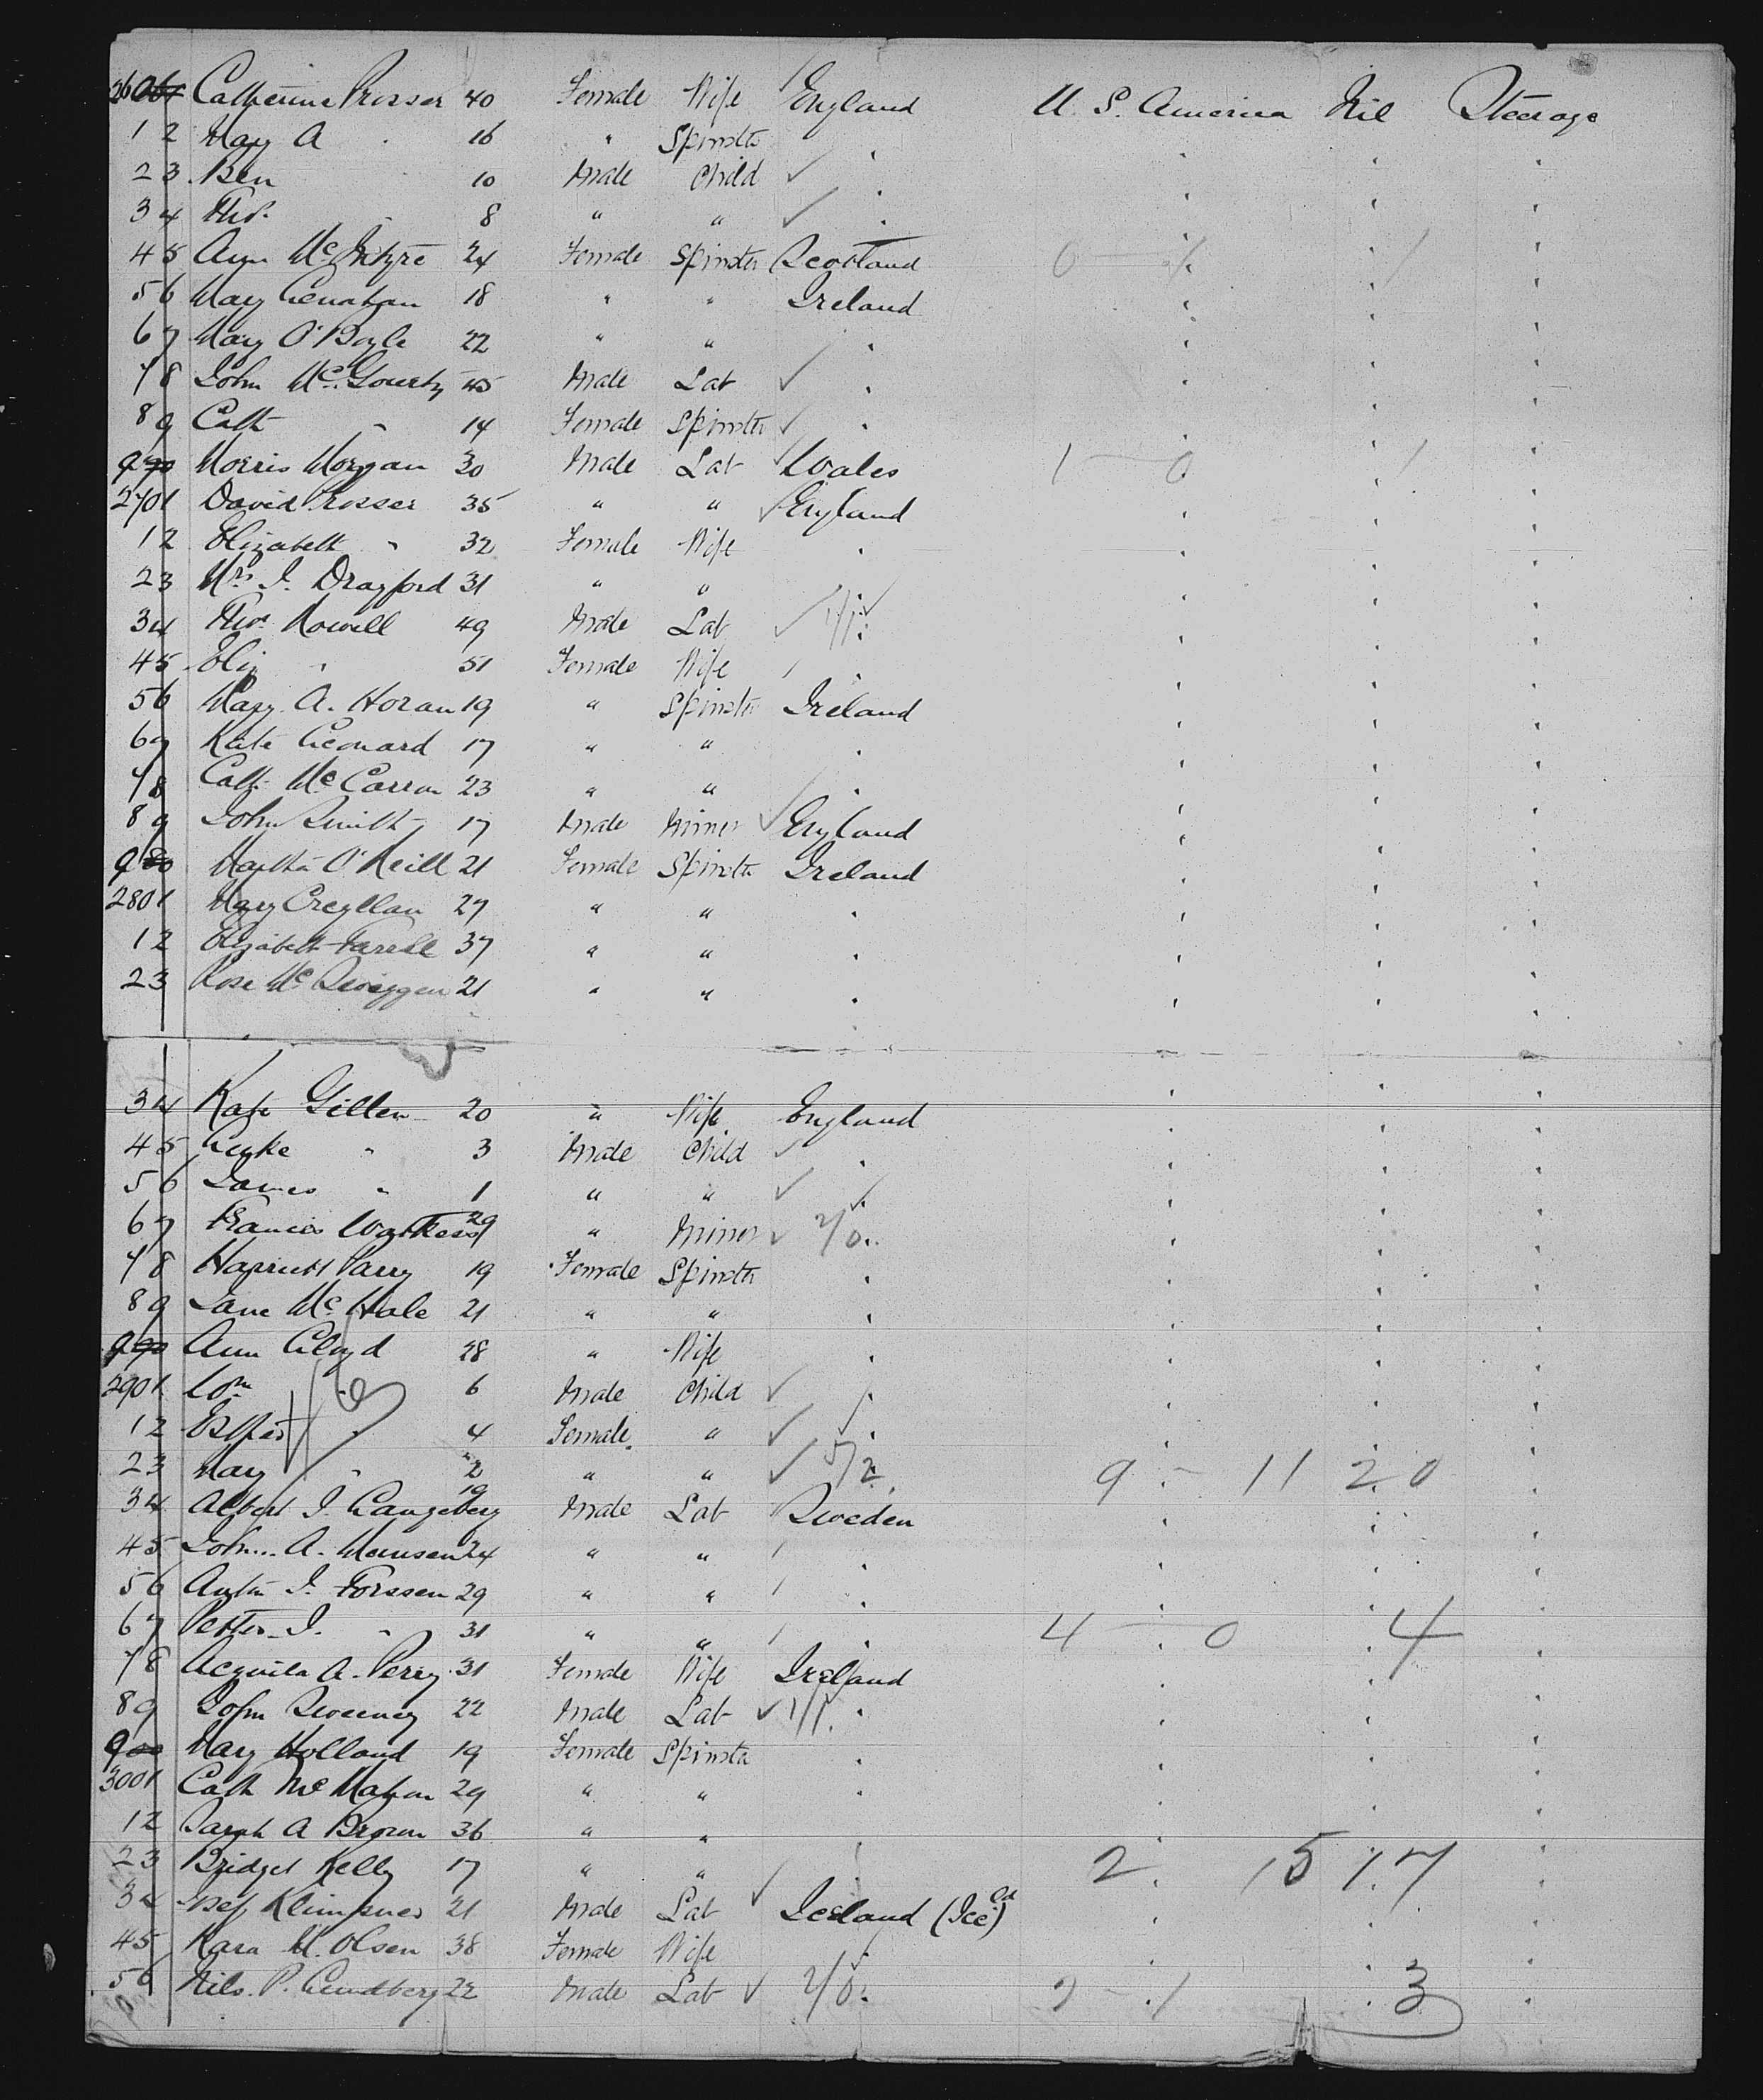 260 61 Catherine Prosser 40 Female Wife England U. S. America Nil Steerage
1 2 Mary A " 16 " Spinster "
2 3 Ben 10 Male Child "
3 4 Thos. " 8 " " "
4 5 Ann McIntyre 24 Female Spinster Scotland 0 — 1 1
5 6 Mary Lenahan 18 " " Ireland
6 7 Mary O'Boyle 22 " " "
7 8 John McGourty 45 Male Lab "
8 9 Cath " 14 Female Spinster "
9 70 Morris Morgan 30 Male Lab Wales 1 — 0 1
270 1 David Prosser 35 " " England
1 2 Elizabeth " 32 Female Wife "
2 3 Mrs J. Drayford 31 " " "
3 4 Thos. Rowell 49 Male Lab 1/1
4 5 Eliz " 51 Female Wife "
5 6 Mary A. Horan 19 " Spinster Ireland
6 7 Kate Leonard 17 " " "
7 8 Cath. McCarron 23 " " "
8 9 John Smith 17 Male Miner England
9 80 Martha O'Neill 21 Female Spinster Ireland
280 1 Mary 27 " " "
1 2 Elizabeth Farrell 37 " " "
2 3 Rose McSwiggen 21 " " "
3 4 Kate Gillen 20 " Wife England
4 5 Luke " 3 Male Child "
5 6 James " 1 " " "
6 7 Francis 29 " Miner 2/0
7 8 Harriett Parry 19 Female Spinster "
8 9 Jane McHale 21 " " "
9 90 Ann Lloyd 28 " Wife "
290 1 Wm " 6 Male Child "
1 2 Esther " 4 Female " "
2 3 Mary " 2 " " 5/2 9 — 11 20
3 4 Albert J. Langeberg 19 Male Lab Sweden
4 5 John A. Monsen 24 " " "
5 6 Anton J. Forssen 29 " " "
6 7 Petter J. " 31 " " " 4 — 0 4
7 8 Acquila A. Perry 31 Female Wife Ireland
8 9 John Sweeney 22 Male Lab 1/1
9 00 Mary Holland 19 Female Spinster "
300 1 Cath McMahon 29 " " "
1 2 Sarah A Brown 36 " " "
2 3 Bridget Kelly 17 " " " 2 15 17
3 4 21 Male Lab Iceland (Iceld)
4 5 Kara M. Olsen 38 Female Wife
5 6 Nils. P. Lundberg 22 Male Lab 2/0 2 — 1 3